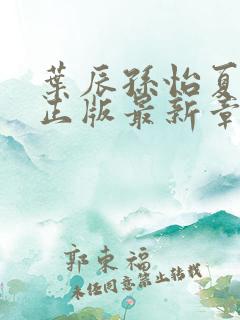 葉辰孫怡夏
正版最新章
郭東福
未经同意禁止转载